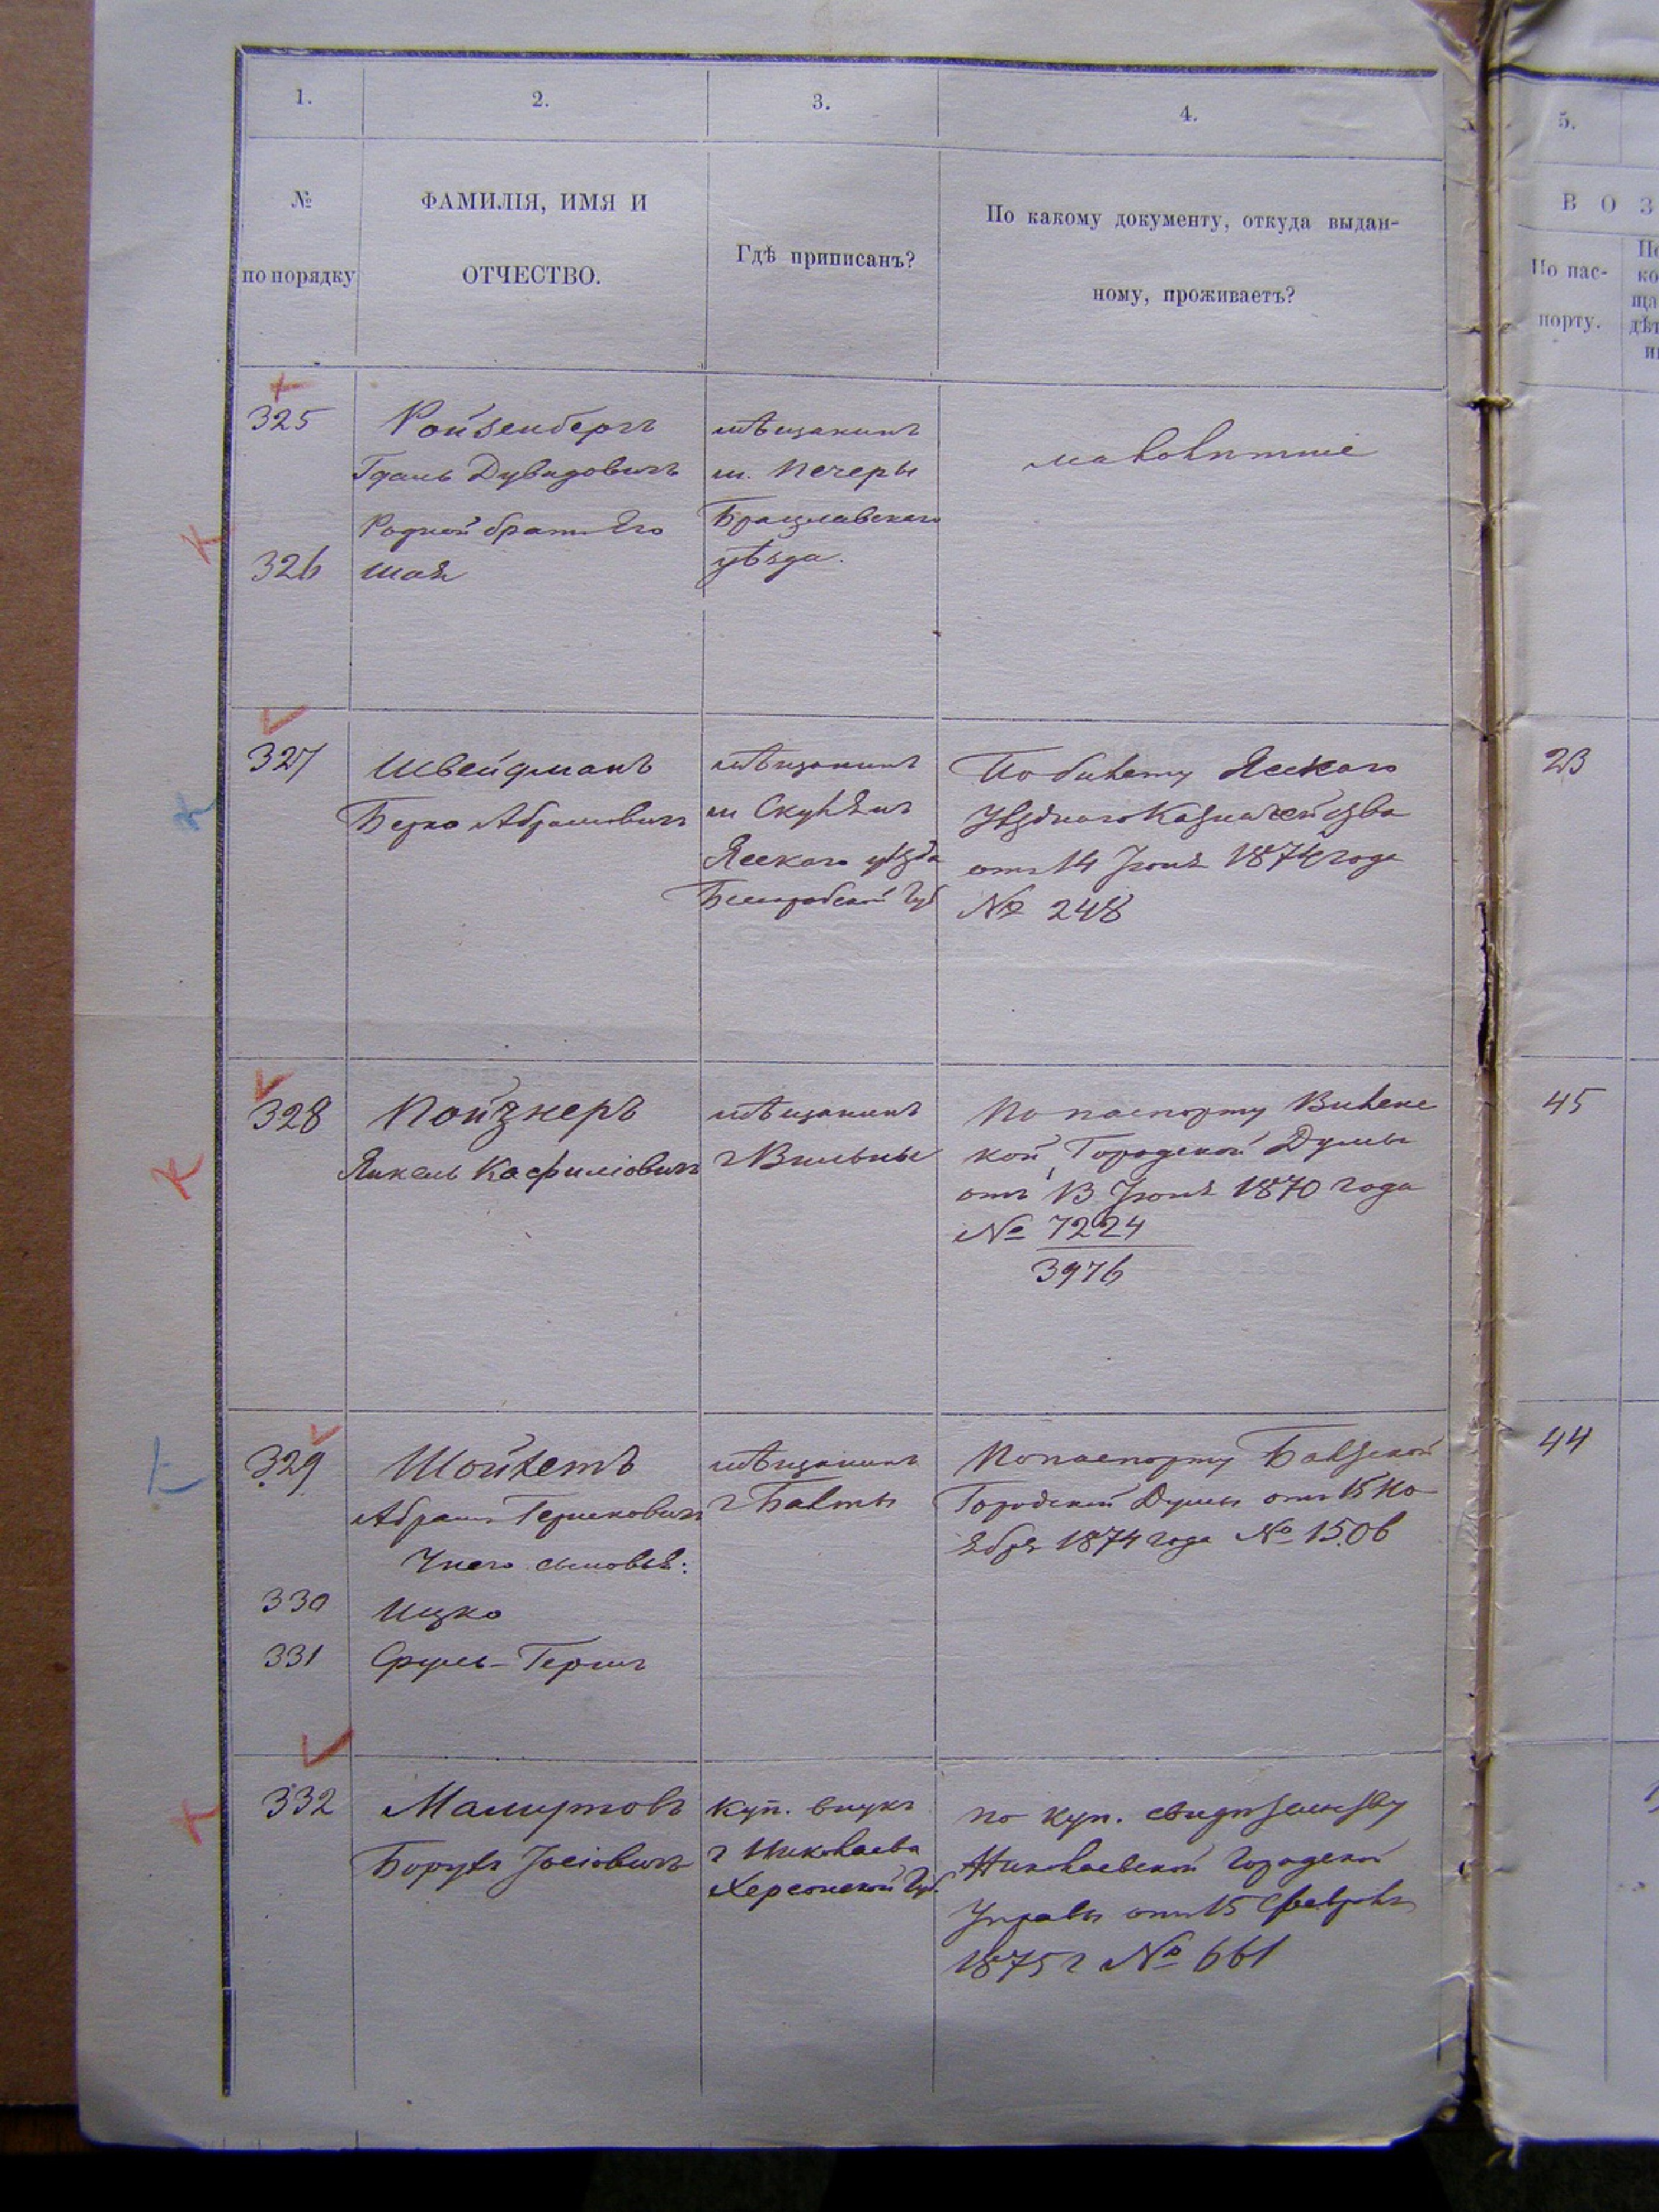 1.
2.
3.
4.
5.
№
по порядку
ФАМИЛІЯ, ИМЯ И
ОТЧЕСТВО.
Гдѣ приписанъ?
По какому документу, откуда выдан-
ному, проживаетъ?
В О З
По пас-
порту.
325
Ройзенбергъ
Дувидовичъ
Родной братъ его
326
Шая
мѣщанинъ
м. Печеры
Брацлавскаго
уѣзда.
малолѣтніе
327
Швейдманъ
Берко Абрамовичъ
мѣщанинъ
м Скулянъ
Ясскаго уѣзда
Бессарабской Губ
По билету Ясскаго
Уѣзднаго Казначейства
отъ 14 Іюня 1874 года
№ 248
23
328
Пойзнеръ
Янкель
мѣщанинъ
г Вильны
По паспорту Виленс
кой Городской Думы
отъ 13 Іюня 1870 года
№ 7224
3976
45
329
Шойхетъ
Абрамъ Гершковичъ
У него сыновья:
330
Ицко
331
Сруль-Гершъ
мѣщанинъ
г Балты
По паспорту Балтской
Городской Думы отъ 15 Но
ября 1874 года № 1506
44
332
Борухъ Іосіовичъ
Куп. внукъ
г Николаева
Херсонской Губ.
по куп. свидѣтельству
Николаевской Городской
Управы отъ 15 Февраля
1875 г № 661